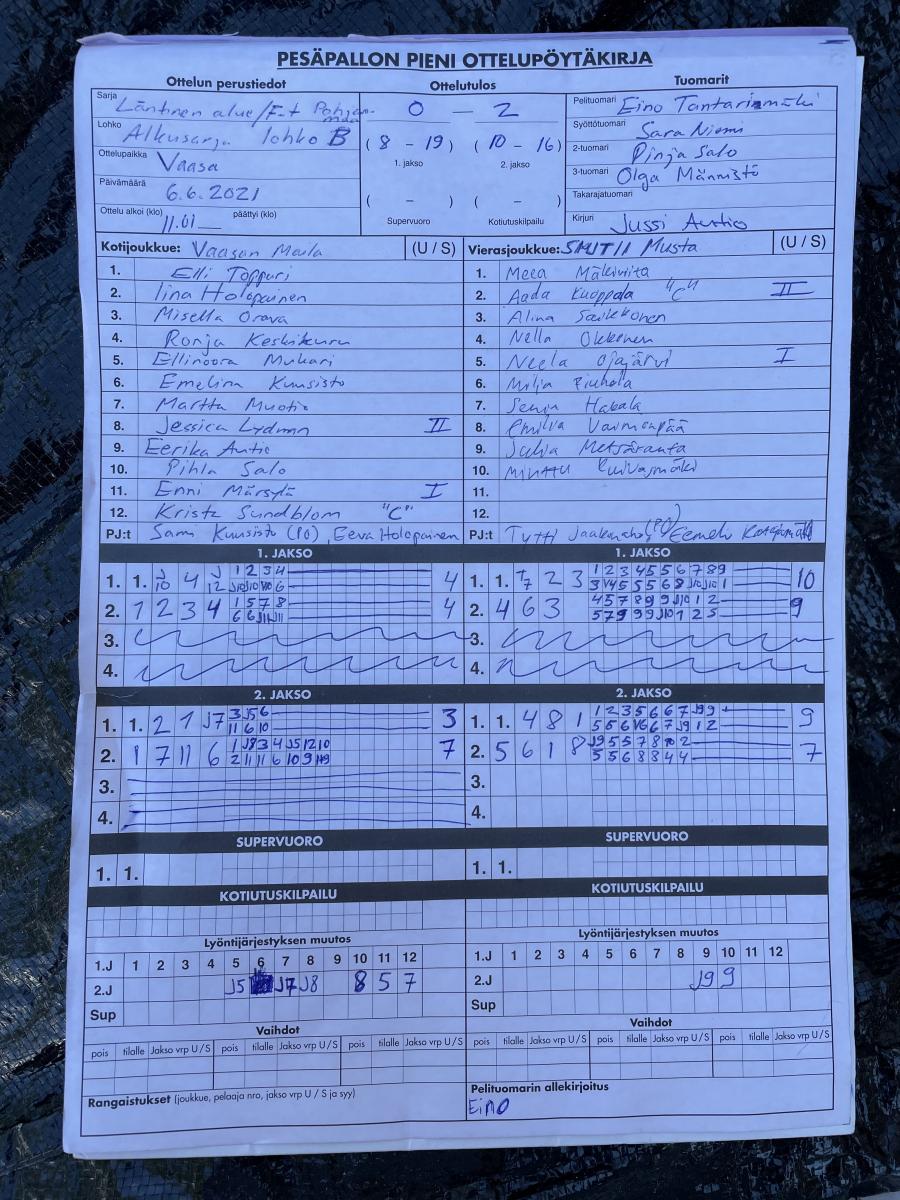 PESÄPALLON PIENI OTTELUPÖYTÄKIRJA
Ottelun perustiedot
Sarja Läntinen alue/F-t Pohjanmaa
Lohko Alkusarja lohko B
Ottelupaikka Vaasa
Päivämäärä 6.6.2021
Ottelu alkoi (klo) 11.01 päättyi (klo)
Ottelutulos
0 – 2
( 8 – 19 ) ( 10 – 16 )
1. jakso 2. jakso
( – ) ( – )
Supervuoro Kotiutuskilpailu
Tuomarit
Pelituomari Eino
Syöttötuomari Sara Niemi
2-tuomari Pinja Salo
3-tuomari Olga Männistö
Takarajatuomari
Kirjuri Jussi Autio
Kotijoukkue: Vaasan Maila (U / S)
1. Elli Toppari
2. Iina Holopainen
3. Misella Orava
4. Ronja Keskikuru
5. Ellinoora Mukari
6. Emelina Kuusisto
7. Martta Muotio
8. Jessica Lydman II
9. Eerika Autio
10. Pihla Salo
11. Enni Märsylä I
12. Krista Sundblom "C"
PJ:t Sami Kuusisto (PO), Eeva Holopainen
Vierasjoukkue: SMJT II Musta (U / S)
1. Meea Mäkiviita
2. Aada Kuoppala "C" II
3. Alina Saukkonen
4. Nella Okkonen
5. Neela Ojajärvi I
6. Milja
7. Senja Hakala
8. Emilia Vainionpää
9. Julia Metsäranta
10. Minttu
11.
12.
PJ:t Tytti (PJ) Eemeli
1. JAKSO
1. 1. 4 4
2. 1 2 3 4 4
3.
4.
1. JAKSO
1. 1. 2 3 10
2. 4 6 3 9
3.
4.
2. JAKSO
1. 1. 2 1 J7 3
2. 1 7 11 6 7
3.
4.
2. JAKSO
1. 1. 4 8 1 9
2. 5 6 1 8 7
3.
4.
SUPERVUORO
1. 1.
SUPERVUORO
1. 1.
KOTIUTUSKILPAILU
KOTIUTUSKILPAILU
Lyöntijärjestyksen muutos
1.J 1 2 3 4 5 6 7 8 9 10 11 12
2.J J5 J7 J8 8 5 7
Sup
Lyöntijärjestyksen muutos
1.J 1 2 3 4 5 6 7 8 9 10 11 12
2.J J9 9
Sup
Vaihdot
pois tilalle Jakso vrp U / S pois tilalle Jakso vrp U / S pois tilalle Jakso vrp U / S
Vaihdot
pois tilalle Jakso vrp U / S pois tilalle Jakso vrp U / S pois tilalle Jakso vrp U / S
Rangaistukset (joukkue, pelaaja nro, jakso vrp U / S ja syy)
Pelituomarin allekirjoitus
Eino